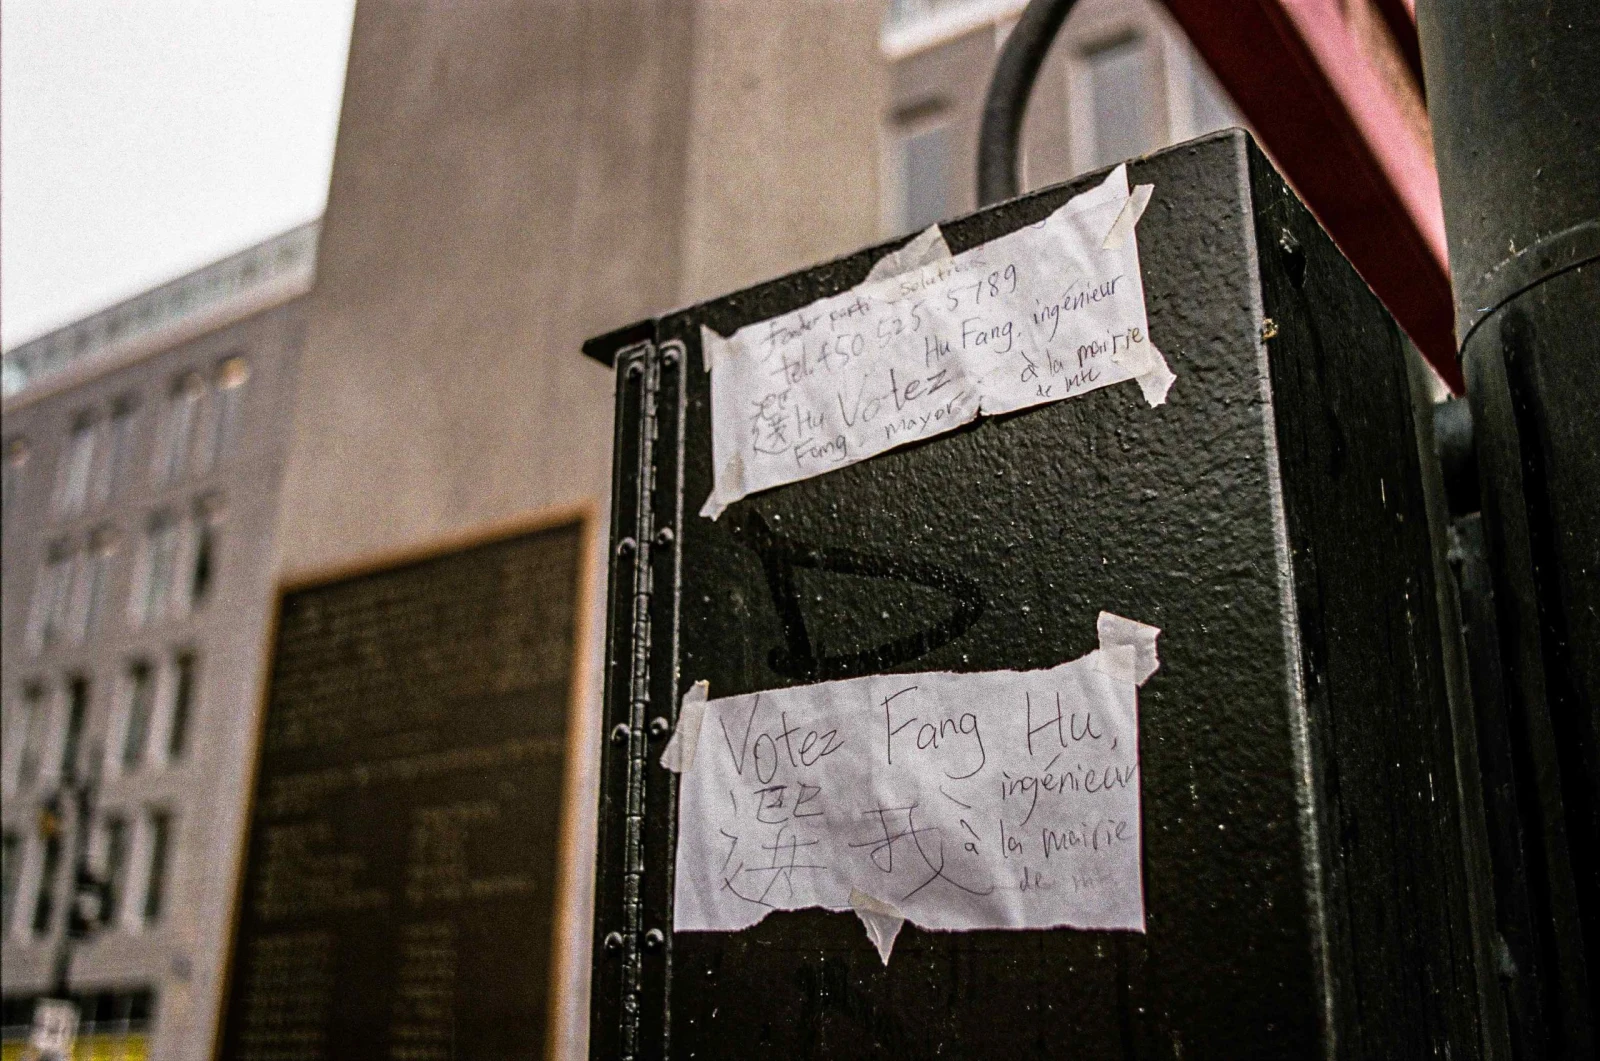 Fonder parti Solution
tel. 450 525.5789
Hu Fang, ingénieur
選 Hu Votez à la mairie
Fang mayor de mtl
Votez Fang Hu,
ingénieur
選我 à la mairie
de mtl